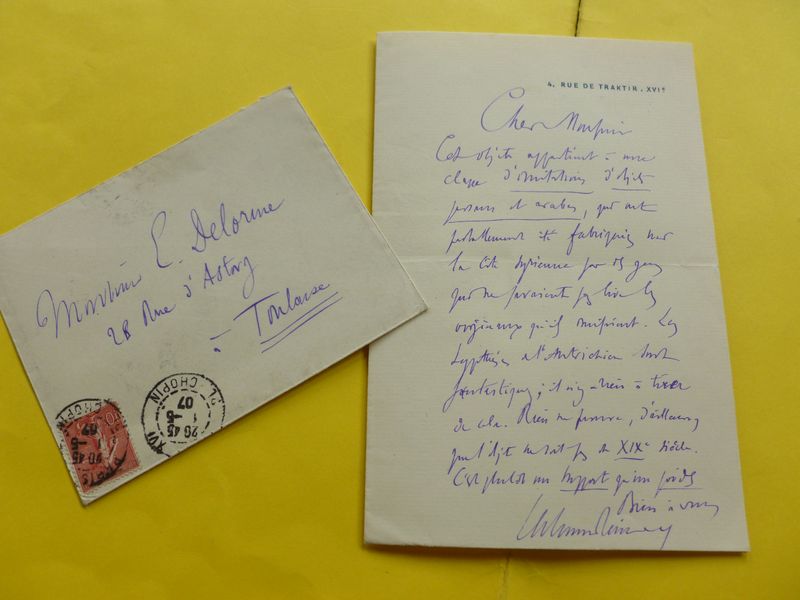 Monsieur E. Delorme
28 Rue d'Astorg
à Toulouse
PL. CHOPIN
20 45
1 - 6
07
4, RUE DE TRAKTIR. XVIᵉ
Cher Monsieur
Cet objet appartient à une
classe d'imitations d'objets
persans et arabes, qui ont
été fabriqués sur
la côte syrienne par des gens
qui ne savaient pas lire les
originaux qu'ils
hypothèses de l'Autrichien sont
fantastiques ; il n'y a rien à tirer
de cela. Rien ne prouve, d'ailleurs
que l'objet ne soit pas du XIXᵉ siècle.
C'est plutôt un support qu'un poids
Bien à vous